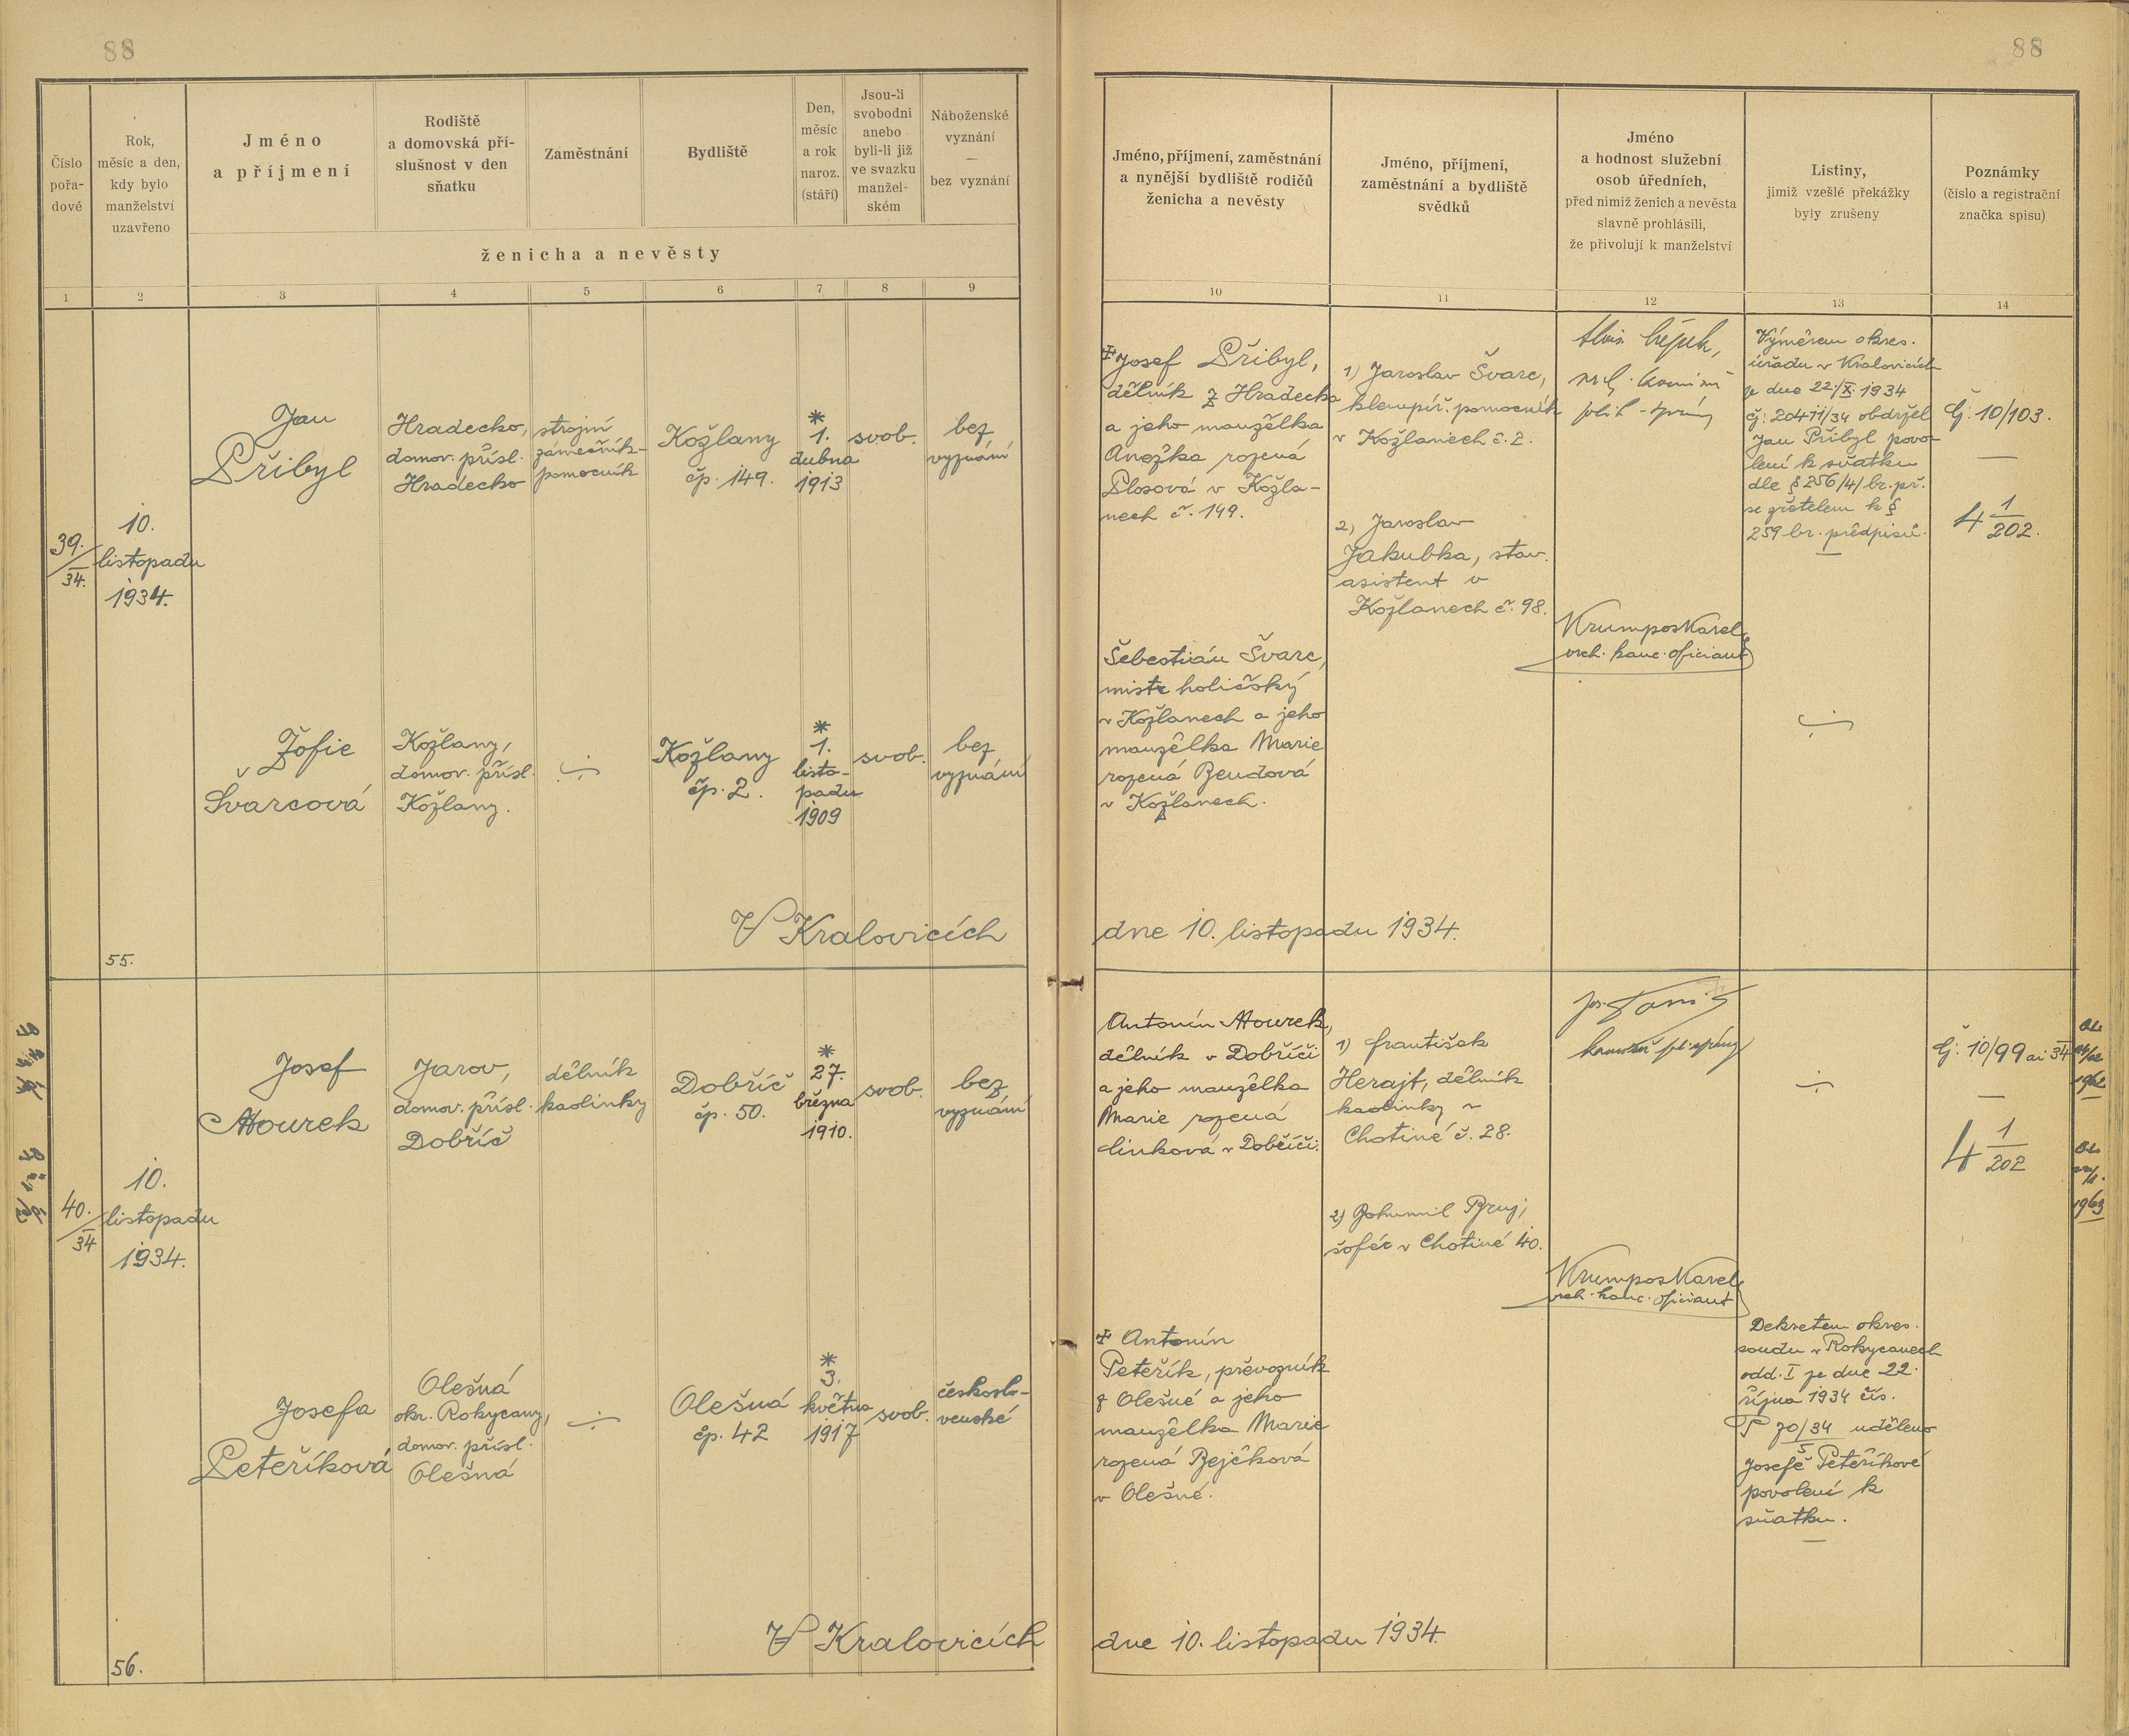 88
88
Číslo
pořa-
dové
Rok,
měsíc a den,
kdy bylo
manželství
uzavřeno
Jméno
a příjmení
Rodiště
a domovská pří-
slušnost v den
sňatku
Zaměstnání
Bydliště
Den,
měsíc
a rok
naroz.
(stáří)
Jsou-li
svobodni
anebo
byli-li již
ve svazku
manžel-
ském
Náboženské
vyznání
—
bez vyznání
ženicha a nevěsty
Jméno, příjmení, zaměstnání
a nynější bydliště rodičů
ženicha a nevěsty
Jméno, příjmení,
zaměstnání a bydliště
svědků
Jméno
a hodnost služební
osob úředních,
před nimiž ženich a nevěsta
slavně prohlásili,
že přivolují k manželství
Listiny,
jimiž vzešlé překážky
byly zrušeny
Poznámky
(číslo a registrační
značka spisu)
1 2 3 4 5 6 7 8 9
10 11 12 13 14
39./34.
10.
listopadu
1934.
Jan
Přibyl
Hradecko,
domov. přísl.
Hradecko
strojní
zámečník-
pomocník
Kožlany
čp. 149.
* 1.
dubna
1913
svob.
bez
vyznání
‡ Josef Přibyl,
dělník z Hradecka
a jeho manželka
Anežka rozená
Plosová v Kožla-
nech č. 149.
1) Jaroslav Švarc,
klempíř. pomocník
v Kožlanech č. 2.
2) Jaroslav
Jakubka, stav.
asistent v
Kožlanech č. 98.
Krumpos Karel,
vrch. kanc. oficiant
Výměrem okres.
úřadu v Kralovicích
ze dne 22./X. 1934
čj: 20411/34 obdržel
Jan Přibyl povo-
lení k sňatku
dle § 256/4/ br. př.
se zřetelem k §
259 br. předpisů.
Čj: 10/103.
4 1/202.
Žofie
Švarcová
Kožlany,
domov. přísl.
Kožlany.
Kožlany
čp. 2.
* 1.
listo-
padu
1909
svob.
bez
vyznání
Šebestián Švarc,
mistr holičský
v Kožlanech a jeho
manželka Marie
rozená Bendová
v Kožlanech.
55.
V Kralovicích
dne 10. listopadu 1934.
40./34
10.
listopadu
1934.
Josef
Mourek
Jarov,
domov. přísl.
Dobříč
dělník
kaolinky
Dobříč
čp. 50.
* 27.
března
1910.
svob.
bez
vyznání
Antonín Mourek,
dělník v Dobříči
a jeho manželka
Marie rozená
Linková v Dobříči.
1) František
Herajt, dělník
kaolinky v
Chotiné č. 28.
2) Bohumil Bruj,
šofér v Chotiné 40.
Krumpos Karel,
vrch. kanc. oficiant
Čj: 10/99 ai 34
4 1/202
1962
1963
Josefa
Peteříková
Olešná
okr. Rokycany,
domov. přísl.
Olešná
Olešná
čp. 42
* 3.
května
1917
svob.
českoslo-
venské
‡ Antonín
Peteřík, převozník
z Olešné a jeho
manželka Marie
rozená Bejčková
v Olešné.
Dekretem okres.
soudu v Rokycanech
odd. I ze dne 22.
října 1934 čís.
P 70/34 uděleno
5
Josefě Peteříkové
povolení k
sňatku.
56.
V Kralovicích
dne 10. listopadu 1934.